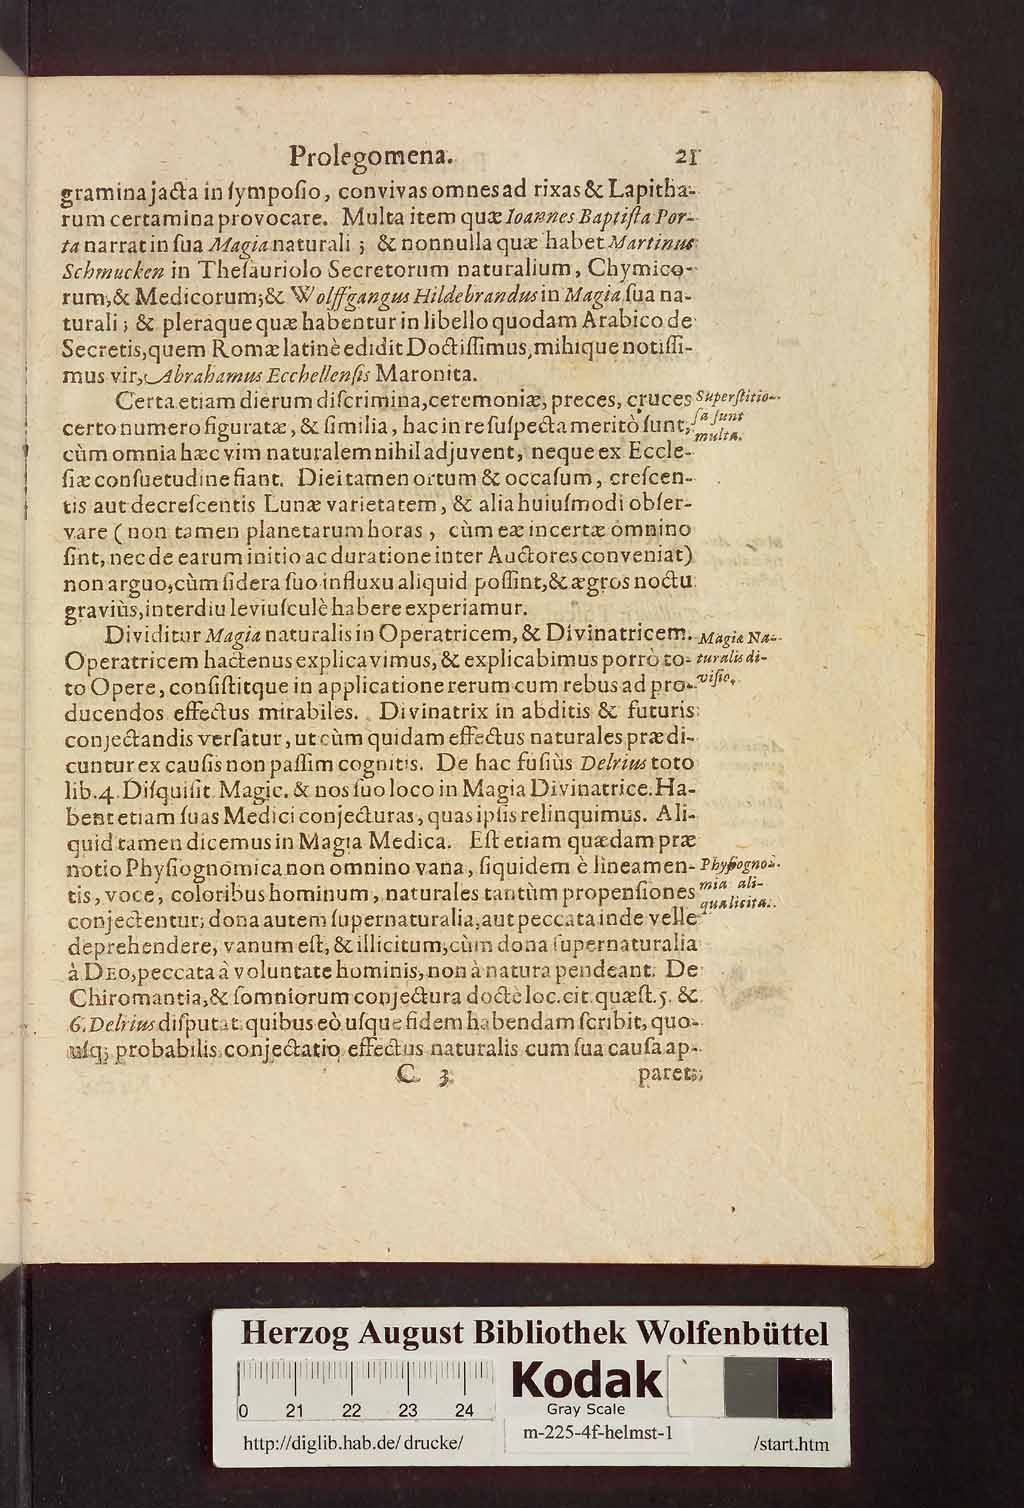 Prolegomena. 21
gramina jacta in ſympoſio, convivas omnes ad rixas & Lapitha-
rum certamina provocare. Multa item quæ Ioannes Baptiſta Por-
ta narrat in ſua Magia naturali; & nonnulla quæ habet Martinus
Schmucken in Theſauriolo Secretorum naturalium, Chymico-
rum, & Medicorum; & Wolffgangus Hildebrandus in Magia ſua na-
turali; & pleraque quæ habentur in libello quodam Arabico de
Secretis, quem Romæ latinè edidit Doctiſſimus, mihique notiſſi-
mus vir, Abrahamus Ecchellenſis Maronita.
Certa etiam dierum diſcrimina, ceremoniæ, preces, cruces
certo numero figuratæ, & ſimilia, hac in re ſuſpecta meritò ſunt,
cùm omnia hæc vim naturalem nihil adjuvent, neque ex Eccle-
ſiæ conſuetudine fiant. Diei tamen ortum & occaſum, creſcen-
tis aut decreſcentis Lunæ varietatem, & alia huiuſmodi obſer-
vare (non tamen planetarum horas, cùm eæ incertæ omnino
ſint, nec de earum initio ac duratione inter Auctores conveniat)
non arguo, cùm ſidera ſuo influxu aliquid poſſint, & ægros noctu
graviùs, interdiu leviuſculè habere experiamur.
Superſtitio-
ſa ſunt
multa.
Dividitur Magia naturalis in Operatricem, & Divinatricem.
Operatricem hactenus explicavimus, & explicabimus porrò to-
to Opere, conſiſtitque in applicatione rerum cum rebus ad pro-
ducendos effectus mirabiles. Divinatrix in abditis & futuris
conjectandis verſatur, ut cùm quidam effectus naturales prædi-
cuntur ex cauſis non paſſim cognitis. De hac fuſiùs Delrius toto
lib. 4. Diſquiſit. Magic. & nos ſuo loco in Magia Divinatrice. Ha-
bent etiam ſuas Medici conjecturas, quas ipſis relinquimus. Ali-
quid tamen dicemus in Magia Medica. Eſt etiam quædam præ
notio Phyſiognomica non omnino vana, ſiquidem è lineamen-
tis, voce, coloribus hominum, naturales tantùm propenſiones
conjectentur; dona autem ſupernaturalia, aut peccata inde velle
deprehendere, vanum eſt, & illicitum, cùm dona ſupernaturalia
à DEO, peccata à voluntate hominis, non à natura pendeant. De
Chiromantia, & ſomniorum conjectura doctè loc. cit. quæſt. 5. &
6. Delrius diſputat: quibus eò uſque fidem habendam ſcribit, quo-
uſq; probabilis conjectatio effectus naturalis cum ſua cauſa ap-
Magia Na-
turalis di-
viſio.
Phyſiogno-
mia ali-
qua licita.
C 3
paret;
Herzog August Bibliothek Wolfenbüttel
0 21 22 23 24
Kodak
Gray Scale
http://diglib.hab.de/drucke/ m-225-4f-helmst-1 /start.htm